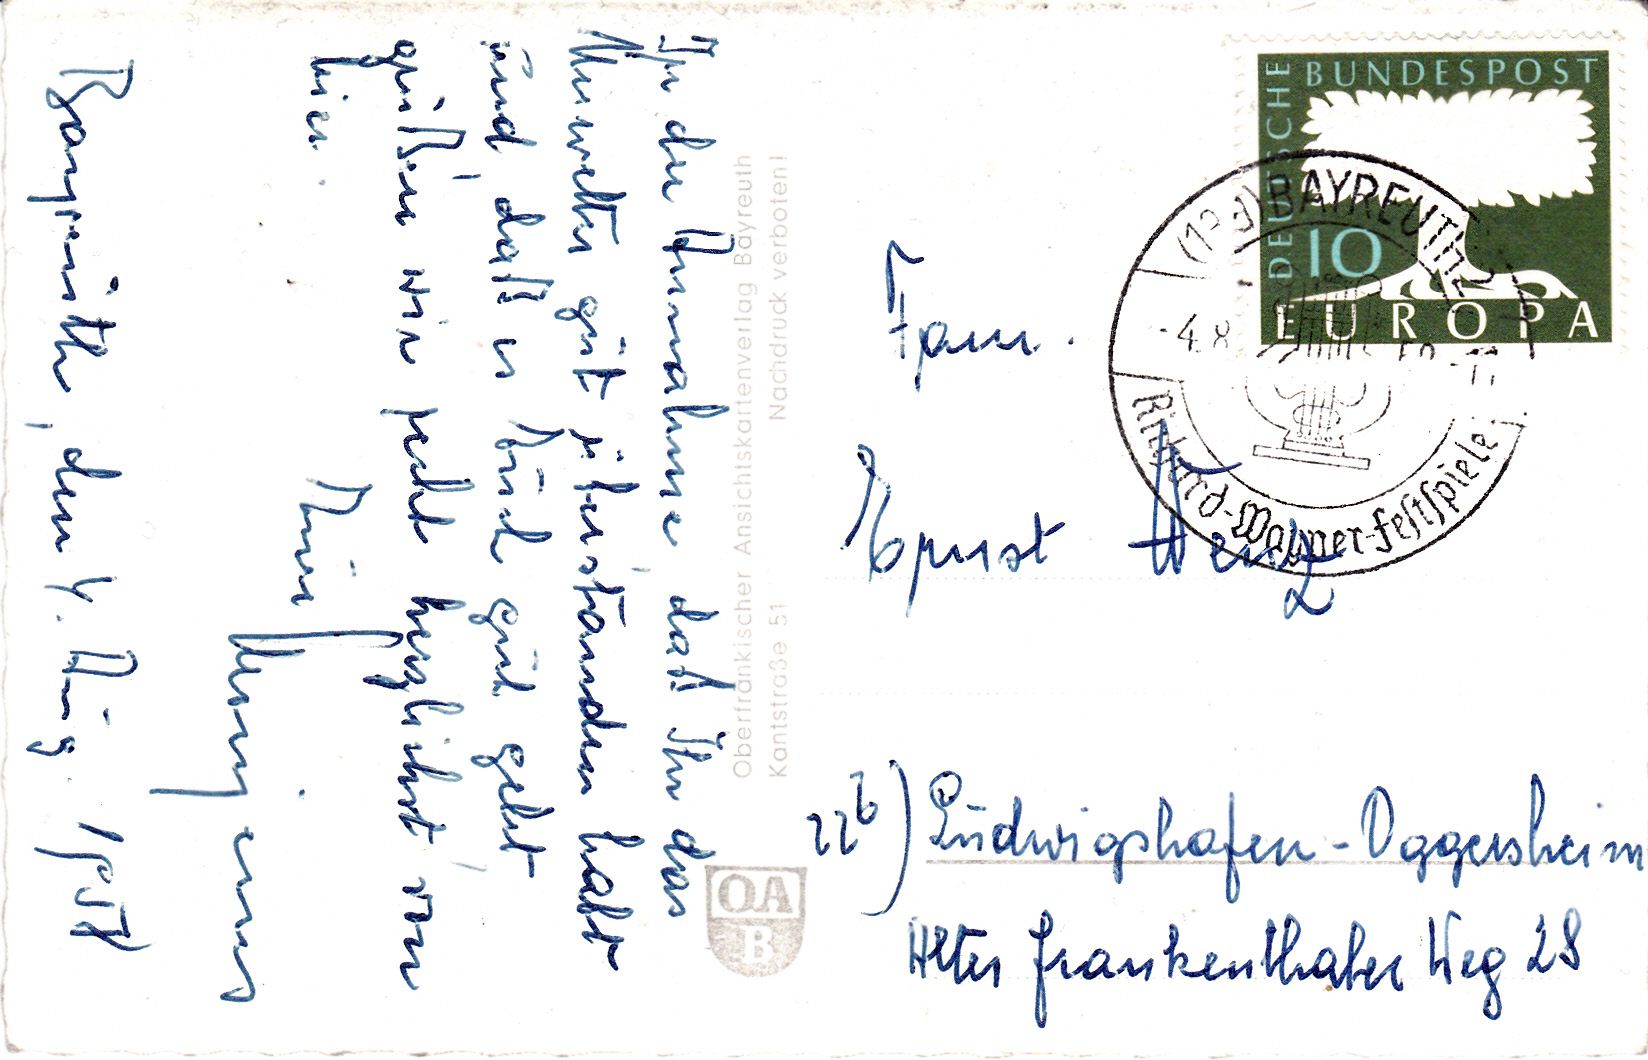 Bayreuth, den 4. Aug. 1958
In der Annahme daß Ihr das
Unwetter gut überstanden habt
und daß es Euch gut geht
grüßen wir recht herzlichst von
hier.
Eure
Oberfränkischer Ansichtskartenverlag Bayreuth
Kantstraße 51 Nachdruck verboten!
OA
B
DEUTSCHE BUNDESPOST
10
EUROPA
(13a) BAYREUTH 2
-4.8. 58 -11
Richard-Wagner-Festspiele
Fam.
Ernst Wenz
22b) Ludwigshafen-Oggersheim
Alter Frankenthaler Weg 28